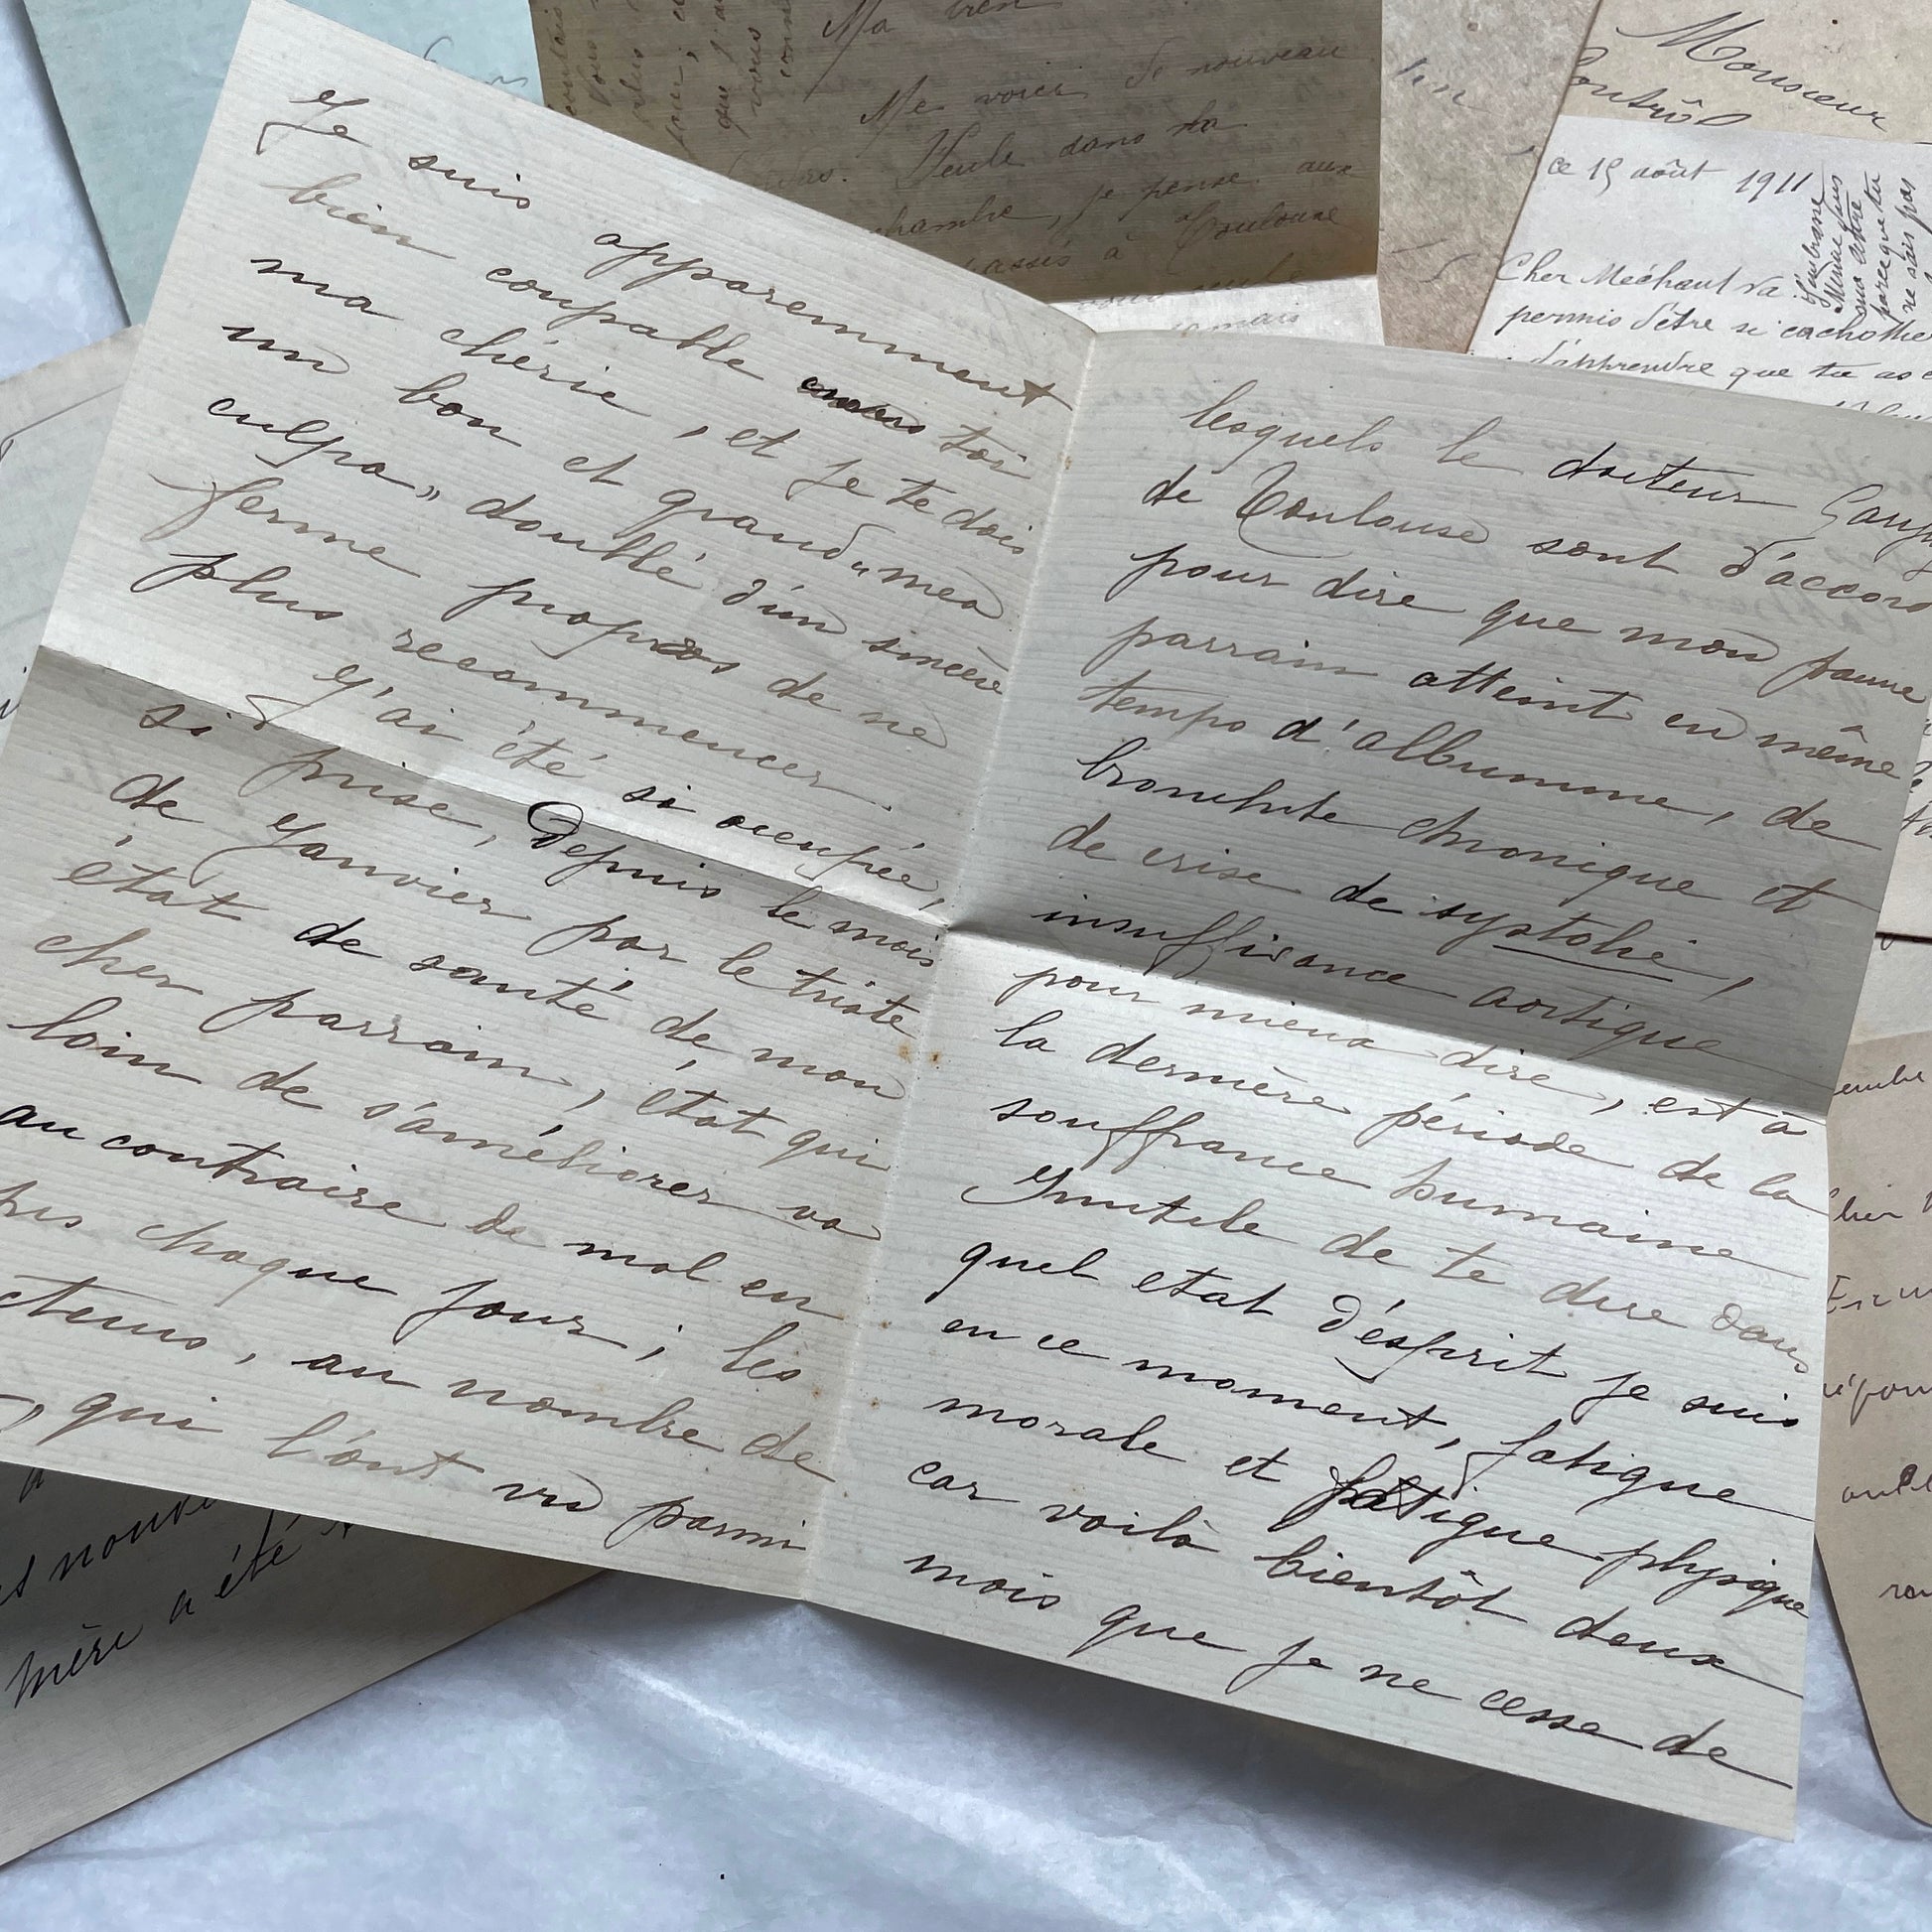 Je suis apparemment
bien coupable envers toi
ma chérie, et je te dois
un bon et grand "mea
culpa" doublé d'un sincère
ferme propos de ne
plus recommencer.
J'ai été si occupée,
si prise, Depuis le mois
de Janvier par le triste
état de santé de mon
cher parrain, état qui
loin de s'améliorer va
au contraire de mal en
pis chaque jour; les
cteurs, au nombre de
, qui l'ont vu parmi
lesquels le docteur
de Toulouse sont d'accord
pour dire que mon pauvre
parrain atteint en même
temps d'albumine, de
bronchite chronique et
de crise de systolie,
insuffisance aortique
pour mieux dire, est à
la dernière période de la
souffrance humaine
Inutile de te dire dans
quel etat d'ésprit je suis
en ce moment, fatigue
morale et fatigue physique
car voilà bientôt deux
mois que je ne cesse de
Ma bien
Me voici de nouveau
Seule dans ta
chambre, je pense aux
passés à Toulouse
Monsieur
Contrôl
ce 15 août 1911
Cher Méchant va
permis d'être si cachottie
d'apprendre que tu as
J'embrasse
parceque tu
ne sais pas
mère a été